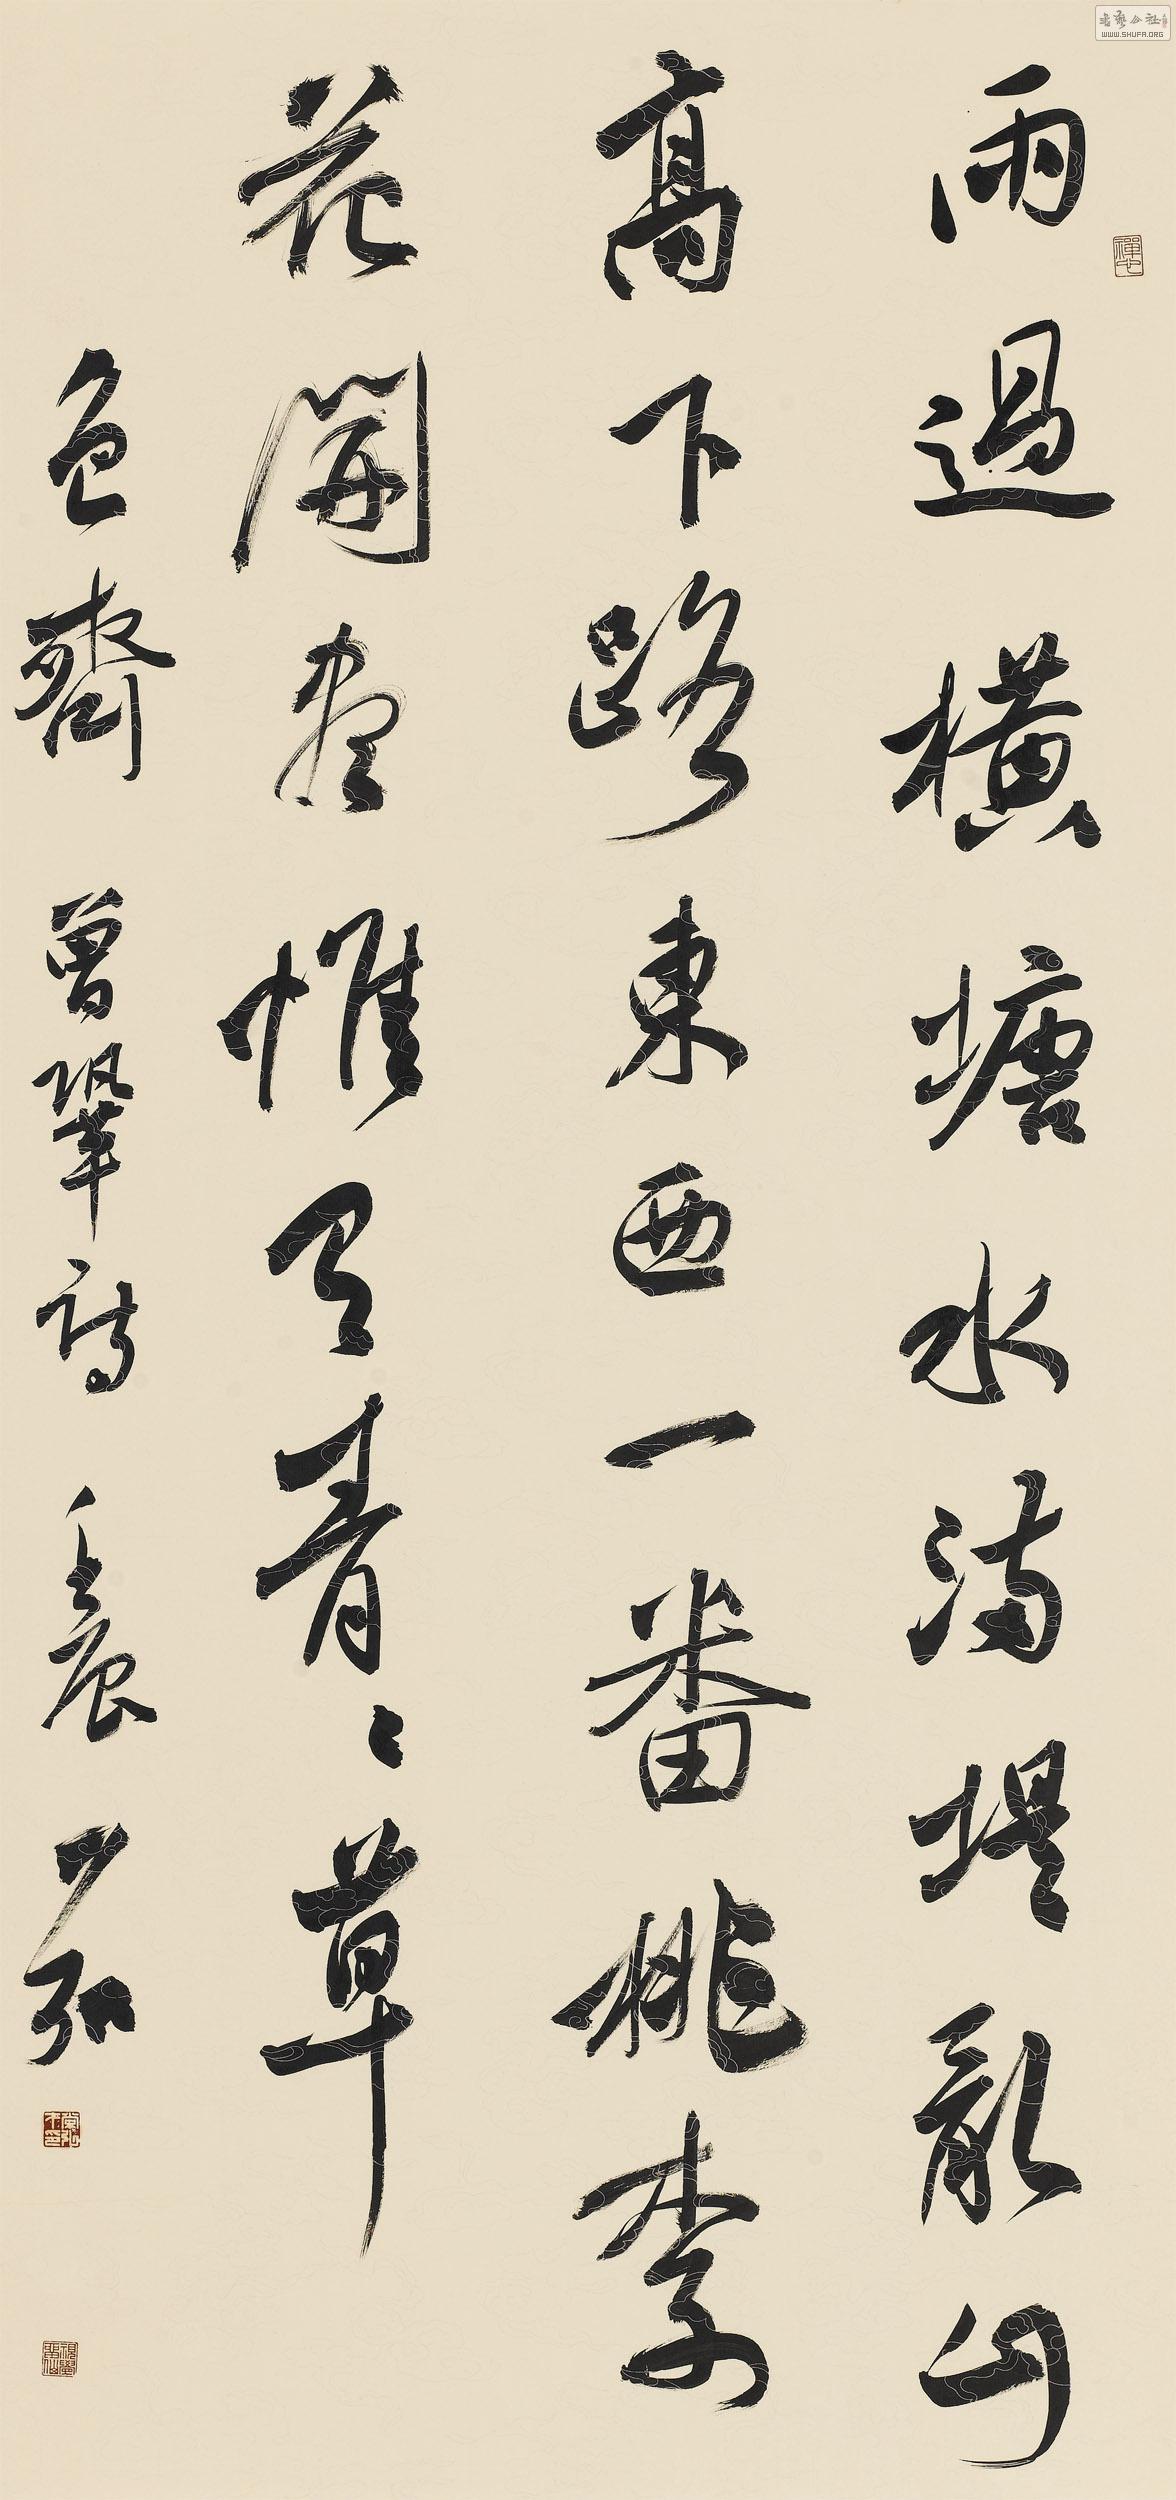 雨過橫塘水滿堤亂山
高下路東西一番桃李
花開盡惟有青〻草
色齊 曾鞏詩 壬辰 弘
禪也
書藝公社
WWW.SHUFA.ORG